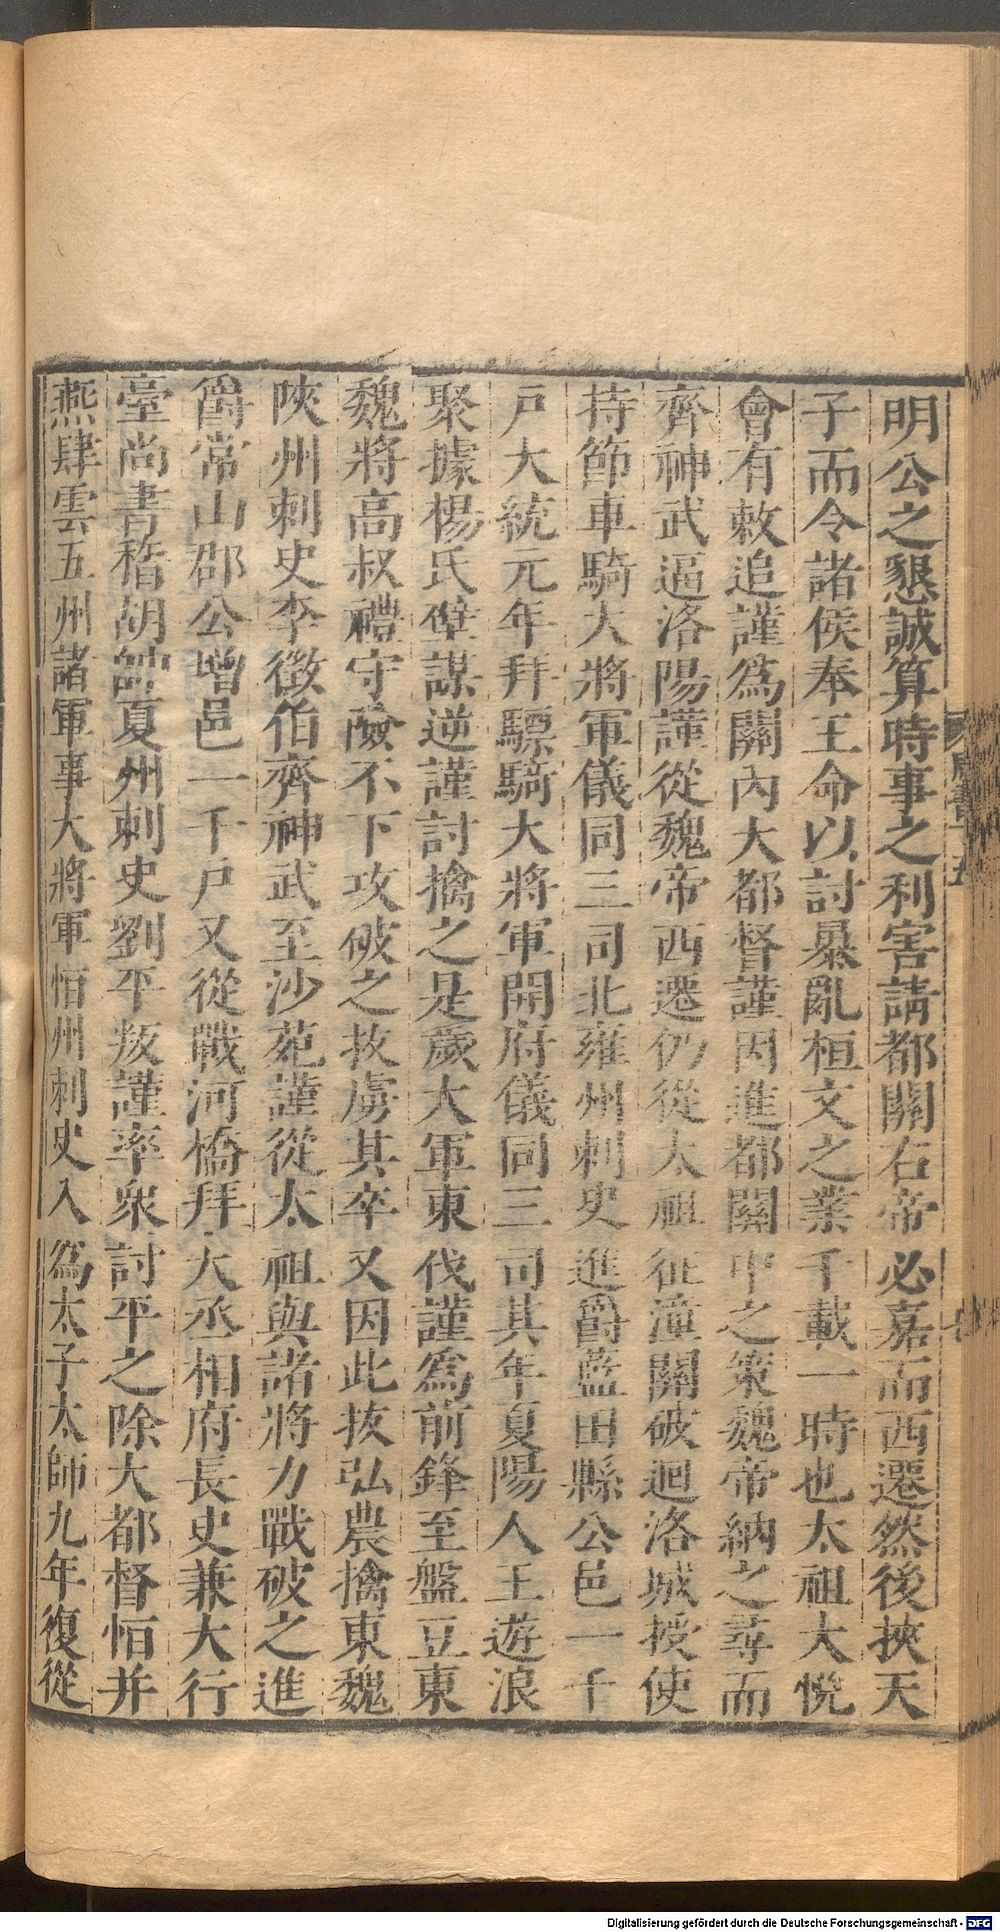 明公之懇誠算時事之利害請都關右帝必嘉而西遷然後挾天
子而令諸侯奉王命以討暴亂桓文之業千載一時也太祖大悅
會有敕追謹爲關內大都督謹因進都關中之策魏帝納之尋而
齊神武逼洛陽謹從魏帝西遷仍從太祖征潼關破迴洛城授使
持節車騎大將軍儀同三司北雍州刺史進爵藍田縣公邑一千
戶大統元年拜驃騎大將軍開府儀同三司其年夏陽人王遊浪
聚據楊氏壁謀逆謹討擒之是歲大軍東伐謹爲前鋒至盤豆東
魏將高叔禮守險不下攻破之拔虜其卒又因此拔弘農擒東魏
陝州刺史李徽伯齊神武至沙苑謹從太祖與諸將力戰破之進
爵常山郡公增邑一千戶又從戰河橋拜大丞相府長史兼大行
臺尚書稽胡帥夏州刺史劉平叛謹率衆討平之除大都督恒并
燕肆雲五州諸軍事大將軍恒州刺史入爲太子太師九年復從
Digitalisierung gefördert durch die Deutsche Forschungsgemeinschaft - DFG